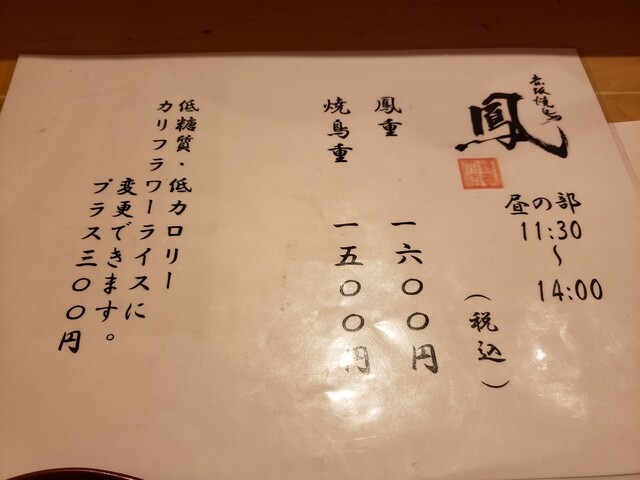 赤坂焼鳥
鳳
昼の部
11:30
～
14:00
（税込）
鳳重 一六〇〇円
焼鳥重 一五〇〇円
低糖質・低カロリー
カリフラワーライスに
変更できます。
プラス三〇〇円